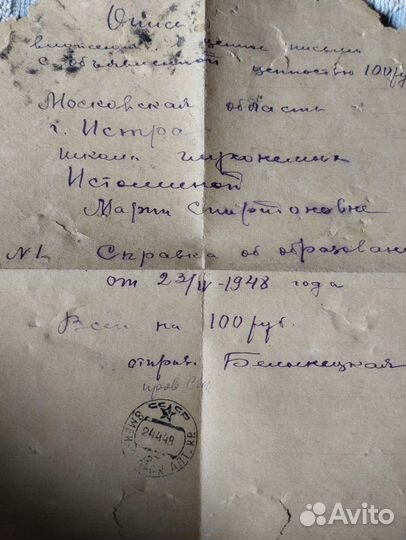 Опись
вложения в ценное письмо
с объявленной ценностью 100 руб
Московская область
г. Истра
школа глухонемых
Истоминой
Марии Спиридоновне
N1. Справка об образован
от 23/IV-1948 года
Всего на 100 руб.
отправ. Белынецкая
пров
СССР
24448
АЛТ. КР.
Avito